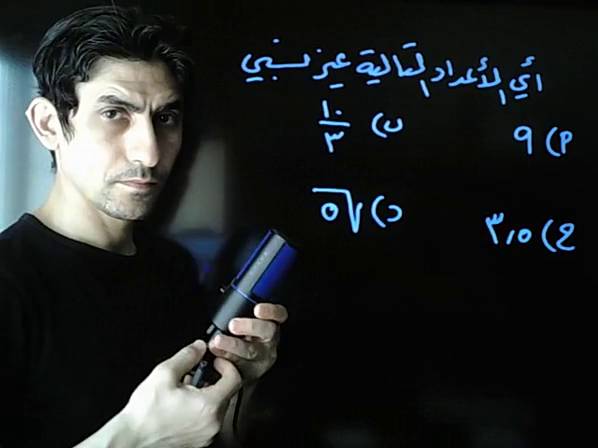 أي الأعداد التالية غير نسبي
أ) ٩ ب) ١٠/٣
ج) ٣,٥ د) √٥